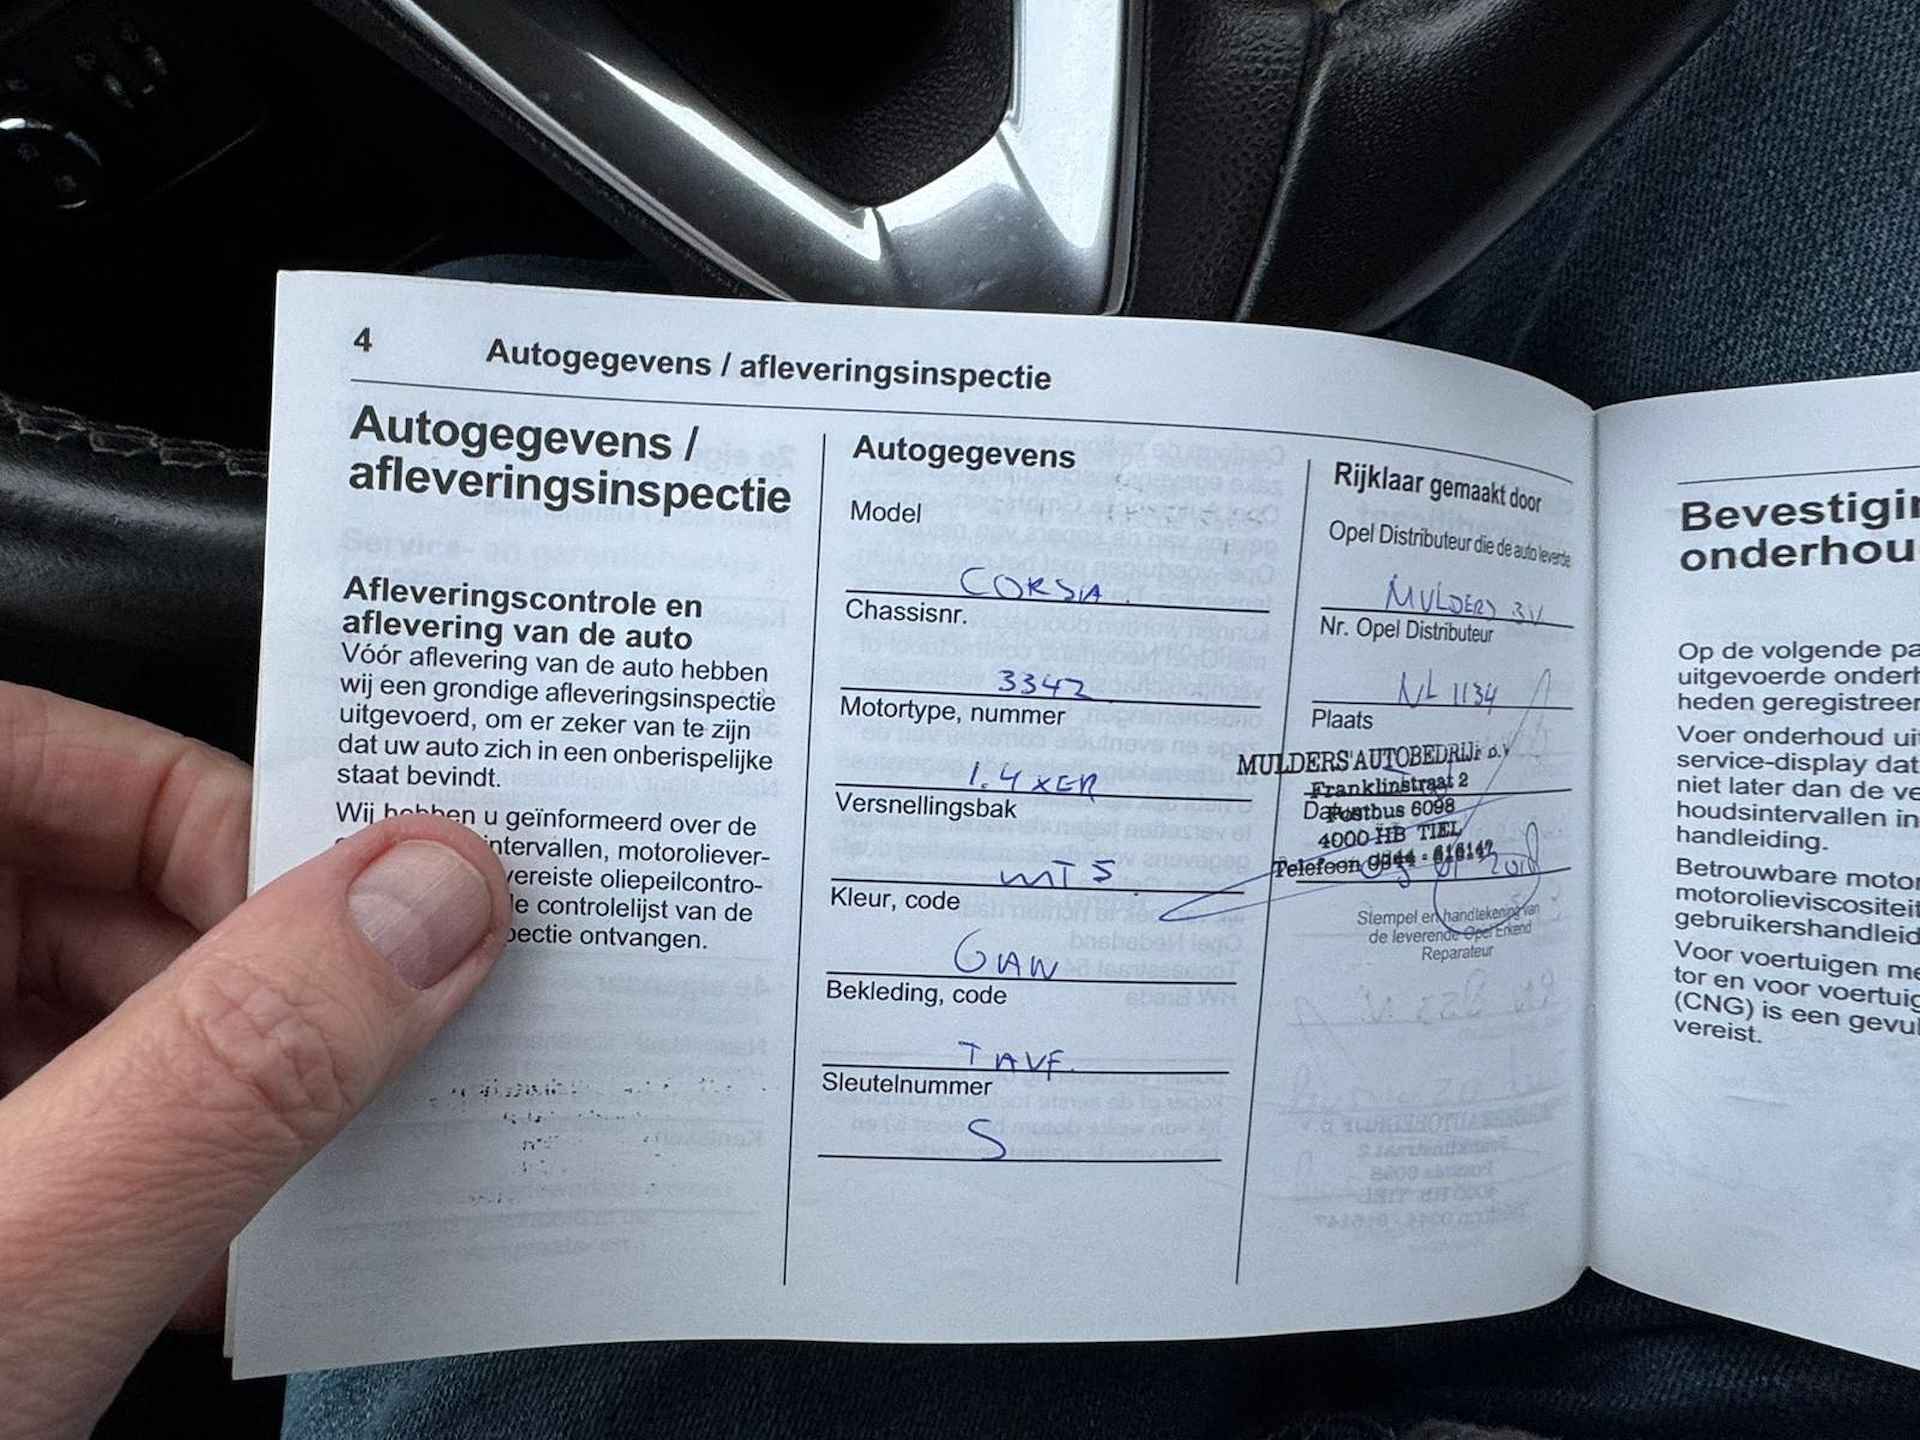 4
Autogegevens / afleveringsinspectie
Autogegevens /
afleveringsinspectie
Afleveringscontrole en
aflevering van de auto
Vóór aflevering van de auto hebben
wij een grondige afleveringsinspectie
uitgevoerd, om er zeker van te zijn
dat uw auto zich in een onberispelijke
staat bevindt.
Wij hebben u geïnformeerd over de
ntervallen, motoroliever-
vereiste oliepeilcontro-
le controlelijst van de
pectie ontvangen.
Autogegevens
Model
CORSA
Chassisnr.
3342
Motortype, nummer
1.4 XER
Versnellingsbak
MT 5
Kleur, code
GAW
Bekleding, code
TAVF
Sleutelnummer
S
Rijklaar gemaakt door
Opel Distributeur die de auto leverde
MULDERS BV
Nr. Opel Distributeur
NL 1134
Plaats
MULDERS' AUTOBEDRIJF b.v
Franklinstraat 2
Postbus 6098
4000 HB TIEL
Telefoon 0344 - 616147
2018
Stempel en handtekening van
de leverende Opel Erkend
Reparateur
Bevestigin
onderhou
Op de volgende pa
uitgevoerde onderh
heden geregistreer
Voer onderhoud ui
service-display dat
niet later dan de ve
houdsintervallen in
handleiding.
Betrouwbare motor
motorolieviscositeit
gebruikershandleid
Voor voertuigen me
tor en voor voertuig
(CNG) is een gevul
vereist.